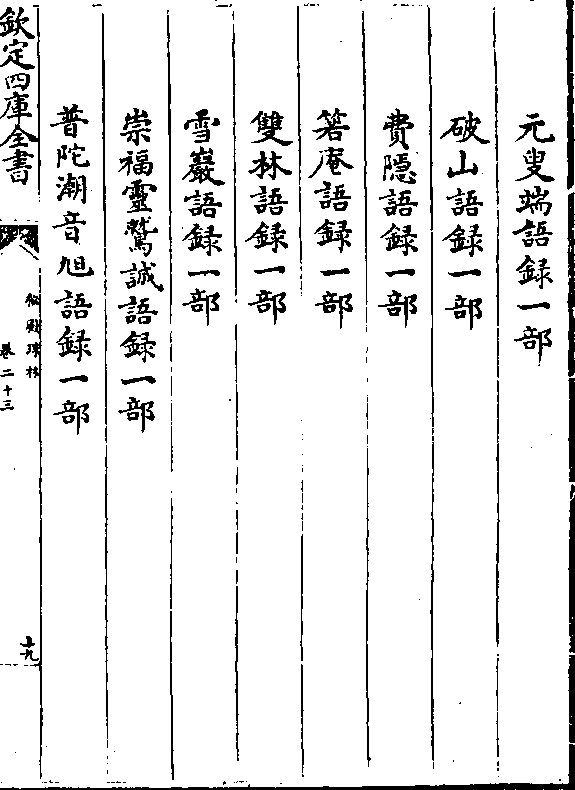 元叟端語録一部
破山語録一部
費隠語録一部
箬庵語録一部
雙林語録一部
雪巖語録一部
崇福靈鷲誠語録一部
普陀潮音旭語録一部
欽定四庫全書
秘殿珠林
卷二十三
十九